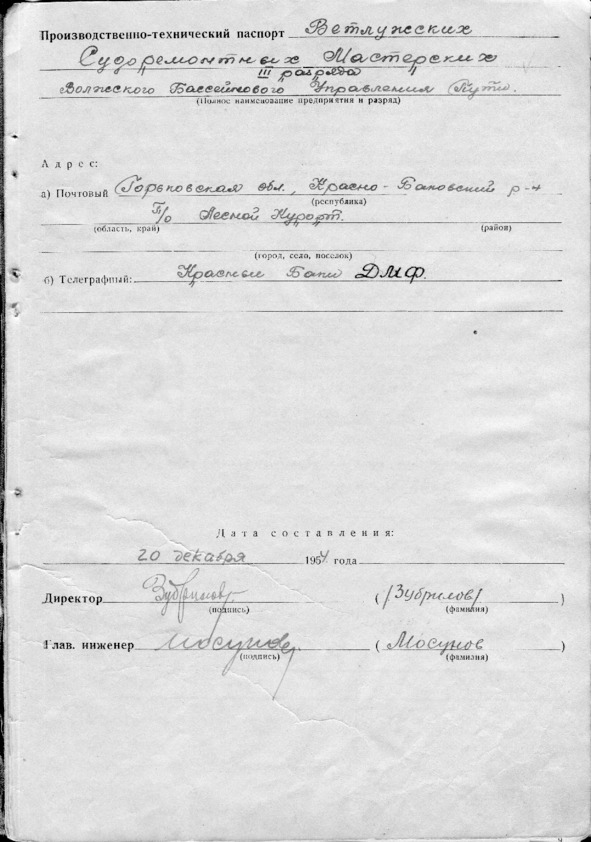 Производственно-технический паспорт Ветлужских
Судоремонтных Мастерских
III разряда
Волжского Бассейнового Управления Пути.
(Полное наименование предприятия и разряд)
Адрес:
а) Почтовый Горьковская обл., Красно-Баковский р-н
(республика)
П/о Лесной Курорт.
(область, край) (район)
(город, село, поселок)
б) Телеграфный: Красные Баки ДМФ.
Дата составления:
20 декабря 1954 года
Директор Зубрилов (/Зубрилов/)
(подпись) (фамилия)
Глав. инженер Мосунов (Мосунов)
(подпись) (фамилия)